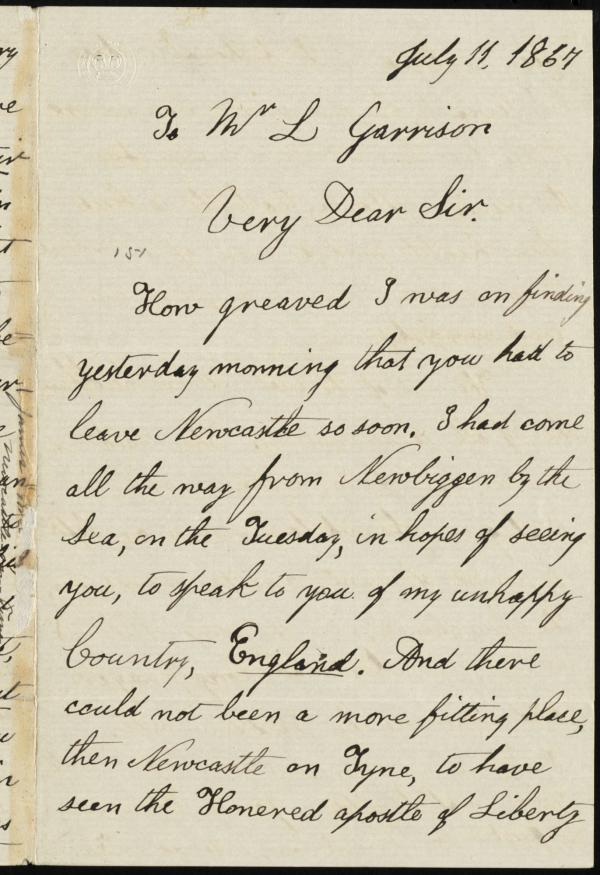 July 11, 1867
To Mr L Garrison
Very Dear Sir.
151
How greaved I was on finding
yesterday morning that you had to
leave Newcastle so soon. I had come
all the way from Newbiggen by the
Sea, on the Tuesday, in hopes of seeing
you, to speak to you of my unhappy
Country, England. And there
could not been a more fitting place,
then Newcastle on Tyne, to have
seen the Honered apostle of Liberty